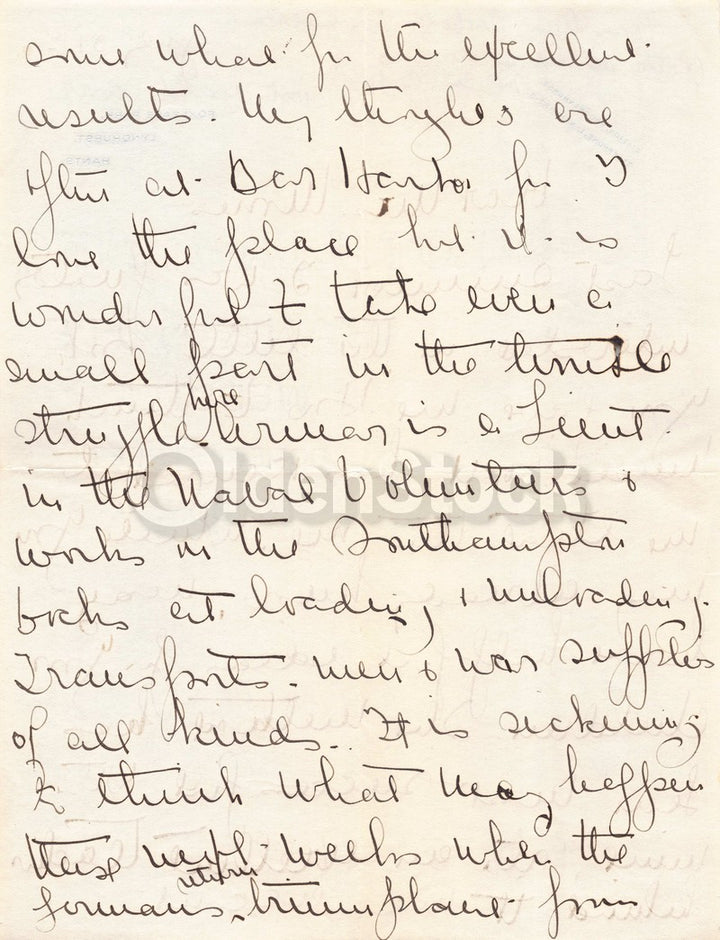 some what for the excellent
results. My thoughts are
often at Bar Harbor for I
love the place but it is
wonderful to take even a
small part in the terrible
struggle here. is a Lieut.
in the Naval Volunteers &
works in the Southampton
Docks at loading & unloading
Transports. men & war supplies
of all kinds. It is sickening
to think what may happen
these next weeks when the
Germans return triumphant from
OldenStock
LYNDHURST
HANTS